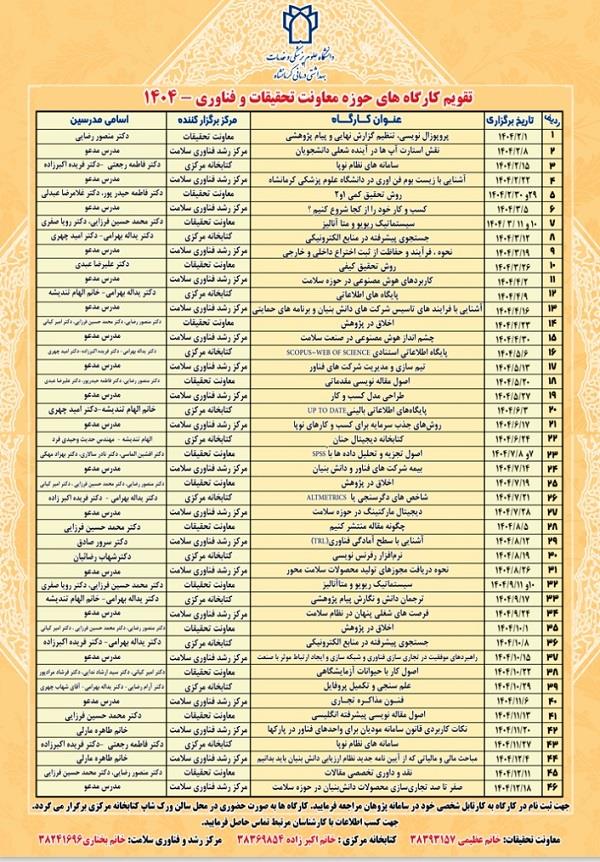 دانشگاه علوم پزشکی و خدمات
بهداشتی درمانی کرمانشاه
تقویم کارگاه های حوزه معاونت تحقیقات و فناوری - ۱۴۰۴
ردیف تاریخ برگزاری عنوان کارگاه مرکز برگزار کننده اسامی مدرسین
۱ ۱۴۰۴/۲/۱ پروپوزال نویسی، تنظیم گزارش نهایی و پیام پژوهشی معاونت تحقیقات دکتر منصور رضایی
۲ ۱۴۰۴/۲/۸ نقش استارت آپ ها در آینده شغلی دانشجویان مرکز رشد فناوری سلامت مدرس مدعو
۳ ۱۴۰۴/۲/۱۵ سامانه های نظام نوپا کتابخانه مرکزی دکتر فاطمه رجعتی -دکتر فریده اکبرزاده
۴ ۱۴۰۴/۲/۲۲ آشنایی با زیست بوم فن اوری در دانشگاه علوم پزشکی کرمانشاه مرکز رشد فناوری سلامت مدرس مدعو
۵ ۲۹و ۱۴۰۴/۲/۳۰ روش تحقیق کمی ۱و۲ معاونت تحقیقات دکتر فاطمه حیدر پور، دکتر غلامرضا عبدلی
۶ ۱۴۰۴/۳/۵ کسب و کار خود را از کجا شروع کنیم ؟ مرکز رشد فناوری سلامت مدرس مدعو
۷ ۱۰ و ۱۴۰۴/۳/۱۱ سیستماتیک ریویو و متا آنالیز معاونت تحقیقات دکتر محمد حسین فرزایی، دکتر رویا صفری
۸ ۱۴۰۴/۳/۱۲ جستجوی پیشرفته در منابع الکترونیکی کتابخانه مرکزی دکتر یداله بهرامی- دکتر امید چهری
۹ ۱۴۰۴/۳/۱۹ نحوه ، فرآیند و حفاظت از ثبت اختراع داخلی و خارجی مرکز رشد فناوری سلامت مدرس مدعو
۱۰ ۱۴۰۴/۳/۲۶ روش تحقیق کیفی معاونت تحقیقات دکتر علیرضا عبدی
۱۱ ۱۴۰۴/۴/۲ کاربردهای هوش مصنوعی در حوزه سلامت مرکز رشد فناوری سلامت مدرس مدعو
۱۲ ۱۴۰۴/۴/۹ پایگاه های اطلاعاتی کتابخانه مرکزی دکتر یداله بهرامی- خانم الهام تندیشه
۱۳ ۱۴۰۴/۴/۱۶ آشنایی با فرایند های تاسیس شرکت های دانش بنیان و برنامه های حمایتی مرکز رشد فناوری سلامت مدرس مدعو
۱۴ ۱۴۰۴/۴/۲۳ اخلاق در پژوهش معاونت تحقیقات دکتر منصور رضایی، دکتر محمد حسین فرزایی، دکتر امیر کیانی
۱۵ ۱۴۰۴/۴/۳۰ چشم انداز هوش مصنوعی در صنعت سلامت مرکز رشد فناوری سلامت مدرس مدعو
۱۶ ۱۴۰۴/۵/۶ پایگاه اطلاعاتی استنادی SCOPUS-WEB OF SCIENCE کتابخانه مرکزی دکتر یداله بهرامی- دکتر فریده اکبرزاده- دکتر امید چهری
۱۷ ۱۴۰۴/۵/۱۳ تیم سازی و مدیریت شرکت های فناور مرکز رشد فناوری سلامت مدرس مدعو
۱۸ ۱۴۰۴/۵/۲۰ اصول مقاله نویسی مقدماتی معاونت تحقیقات دکتر منصور رضایی، دکتر فاطمه حیدرپور، دکتر علیرضا عبدی
۱۹ ۱۴۰۴/۵/۲۷ طراحی مدل کسب و کار مرکز رشد فناوری سلامت مدرس مدعو
۲۰ ۱۴۰۴/۶/۳ پایگاه‌های اطلاعاتی بالینی UP TO DATE کتابخانه مرکزی خانم الهام تندیشه-دکتر امید چهری
۲۱ ۱۴۰۴/۶/۱۷ روش‌های جذب سرمایه برای کسب و کارهای نوپا مرکز رشد فناوری سلامت مدرس مدعو
۲۲ ۱۴۰۴/۶/۲۴ کتابخانه دیجیتال حنان کتابخانه مرکزی الهام تندیشه - مهندس حدیث وحیدی فرد
۲۳ ۷و ۱۴۰۴/۷/۸ اصول تجزیه و تحلیل داده ها با SPSS معاونت تحقیقات دکتر افشین الماسی، دکتر نادر سالاری، دکتر بهزاد مهکی
۲۴ ۱۴۰۴/۷/۱۴ بیمه شرکت های فناور و دانش بنیان مرکز رشد فناوری سلامت مدرس مدعو
۲۵ ۱۴۰۴/۷/۱۹ اخلاق در پژوهش معاونت تحقیقات دکتر منصور رضایی، دکتر محمد حسین فرزایی، دکتر امیر کیانی
۲۶ ۱۴۰۴/۷/۲۱ شاخص های دگرسنجی یا ALTMETRICS کتابخانه مرکزی دکتر یداله بهرامی - دکتر فریده اکبر زاده
۲۷ ۱۴۰۴/۷/۲۸ دیجیتال مارکتینگ در حوزه سلامت مرکز رشد فناوری سلامت مدرس مدعو
۲۸ ۱۴۰۴/۸/۵ چگونه مقاله منتشر کنیم معاونت تحقیقات دکتر محمد حسین فرزایی
۲۹ ۱۴۰۴/۸/۱۲ آشنایی با سطح آمادگی فناوری(TRL) مرکز رشد فناوری سلامت دکتر سرور صادق
۳۰ ۱۴۰۴/۸/۱۹ نرم‌افزار رفرنس نویسی کتابخانه مرکزی دکتر شهاب رضائیان
۳۱ ۱۴۰۴/۸/۲۶ نحوه دریافت مجوزهای تولید محصولات سلامت محور مرکز رشد فناوری سلامت مدرس مدعو
۳۲ ۱۰و ۱۴۰۴/۹/۱۱ سیستماتیک ریویو و متاآنالیز معاونت تحقیقات دکتر محمد حسین فرزایی، دکتر رویا صفری
۳۳ ۱۴۰۴/۹/۱۷ ترجمان دانش و نگارش پیام پژوهشی کتابخانه مرکزی دکتر یداله بهرامی- خانم الهام تندیشه
۳۴ ۱۴۰۴/۹/۲۴ فرصت های شغلی پنهان در نظام سلامت مرکز رشد فناوری سلامت مدرس مدعو
۳۵ ۱۴۰۴/۱۰/۱ اخلاق در پژوهش معاونت تحقیقات دکتر منصور رضایی، دکتر محمد حسین فرزایی، دکتر امیر کیانی
۳۶ ۱۴۰۴/۱۰/۸ جستجوی پیشرفته در منابع الکترونیکی کتابخانه مرکزی دکتر یداله بهرامی- دکتر فریده اکبرزاده
۳۷ ۱۴۰۴/۱۰/۱۵ راهبردهای موفقیت در تجاری سازی فناوری و شبکه سازی و ایجاد ارتباط موثر با صنعت مرکز رشد فناوری سلامت مدرس مدعو
۳۸ ۱۴۰۴/۱۰/۲۲ اصول کار با حیوانات آزمایشگاهی معاونت تحقیقات دکتر امیر کیانی، دکتر سید ارشاد ندایی، دکتر فرشاد مرادپور
۳۹ ۱۴۰۴/۱۰/۲۹ علم سنجی و تکمیل پروفایل کتابخانه مرکزی دکتر آرام رضایی- دکتر یداله بهرامی- آقای شهاب چهری
۴۰ ۱۴۰۴/۱۱/۶ فنون مذاکره تجاری مرکز رشد فناوری سلامت مدرس مدعو
۴۱ ۱۴۰۴/۱۱/۱۳ اصول مقاله نویسی پیشرفته انگلیسی معاونت تحقیقات دکتر محمد حسین فرزایی
۴۲ ۱۴۰۴/۱۱/۲۰ نکات کاربردی قانون سامانه مودیان برای واحدهای فناور در پارکها مرکز رشد فناوری سلامت خانم طاهره مارلی
۴۳ ۱۴۰۴/۱۱/۲۷ سامانه های نظام نوپا کتابخانه مرکزی دکتر فاطمه رجعتی -دکتر فریده اکبرزاده
۴۴ ۱۴۰۴/۱۲/۴ مباحث مالی و مالیاتی که از آیین نامه جدید نظام ارزیابی دانش بنیان باید بدانیم مرکز رشد فناوری سلامت خانم طاهره مارلی
۴۵ ۱۴۰۴/۱۲/۱۱ نقد و داوری تخصصی مقالات معاونت تحقیقات دکتر منصور رضایی، دکتر محمد حسین فرزایی
۴۶ ۱۴۰۴/۱۲/۱۸ صفر تا صد تجاری‌سازی محصولات دانش‌بنیان در حوزه سلامت مرکز رشد فناوری سلامت مدرس مدعو
جهت ثبت نام در کارگاه به کارتابل شخصی خود در سامانه پژوهان مراجعه فرمایید. کارگاه ها به صورت حضوری در محل سالن ورک شاپ کتابخانه مرکزی برگزار می گردد.
جهت کسب اطلاعات با کارشناسان مرتبط تماس حاصل فرمایید.
معاونت تحقیقات: خانم عظیمی ۳۸۳۹۳۱۵۷ کتابخانه مرکزی : خانم اکبر زاده ۳۸۳۶۹۸۵۴ مرکز رشد و فناوری سلامت: خانم بختاری ۳۸۲۴۱۶۹۶